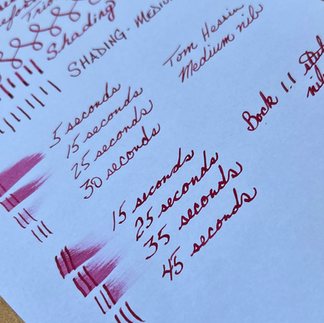 Shading
SHADING - MEDIUM
Tom Hessin
Medium nib
5 seconds
15 seconds
25 seconds
30 seconds
Bock 1.1
nib
15 seconds
25 seconds
35 seconds
45 seconds